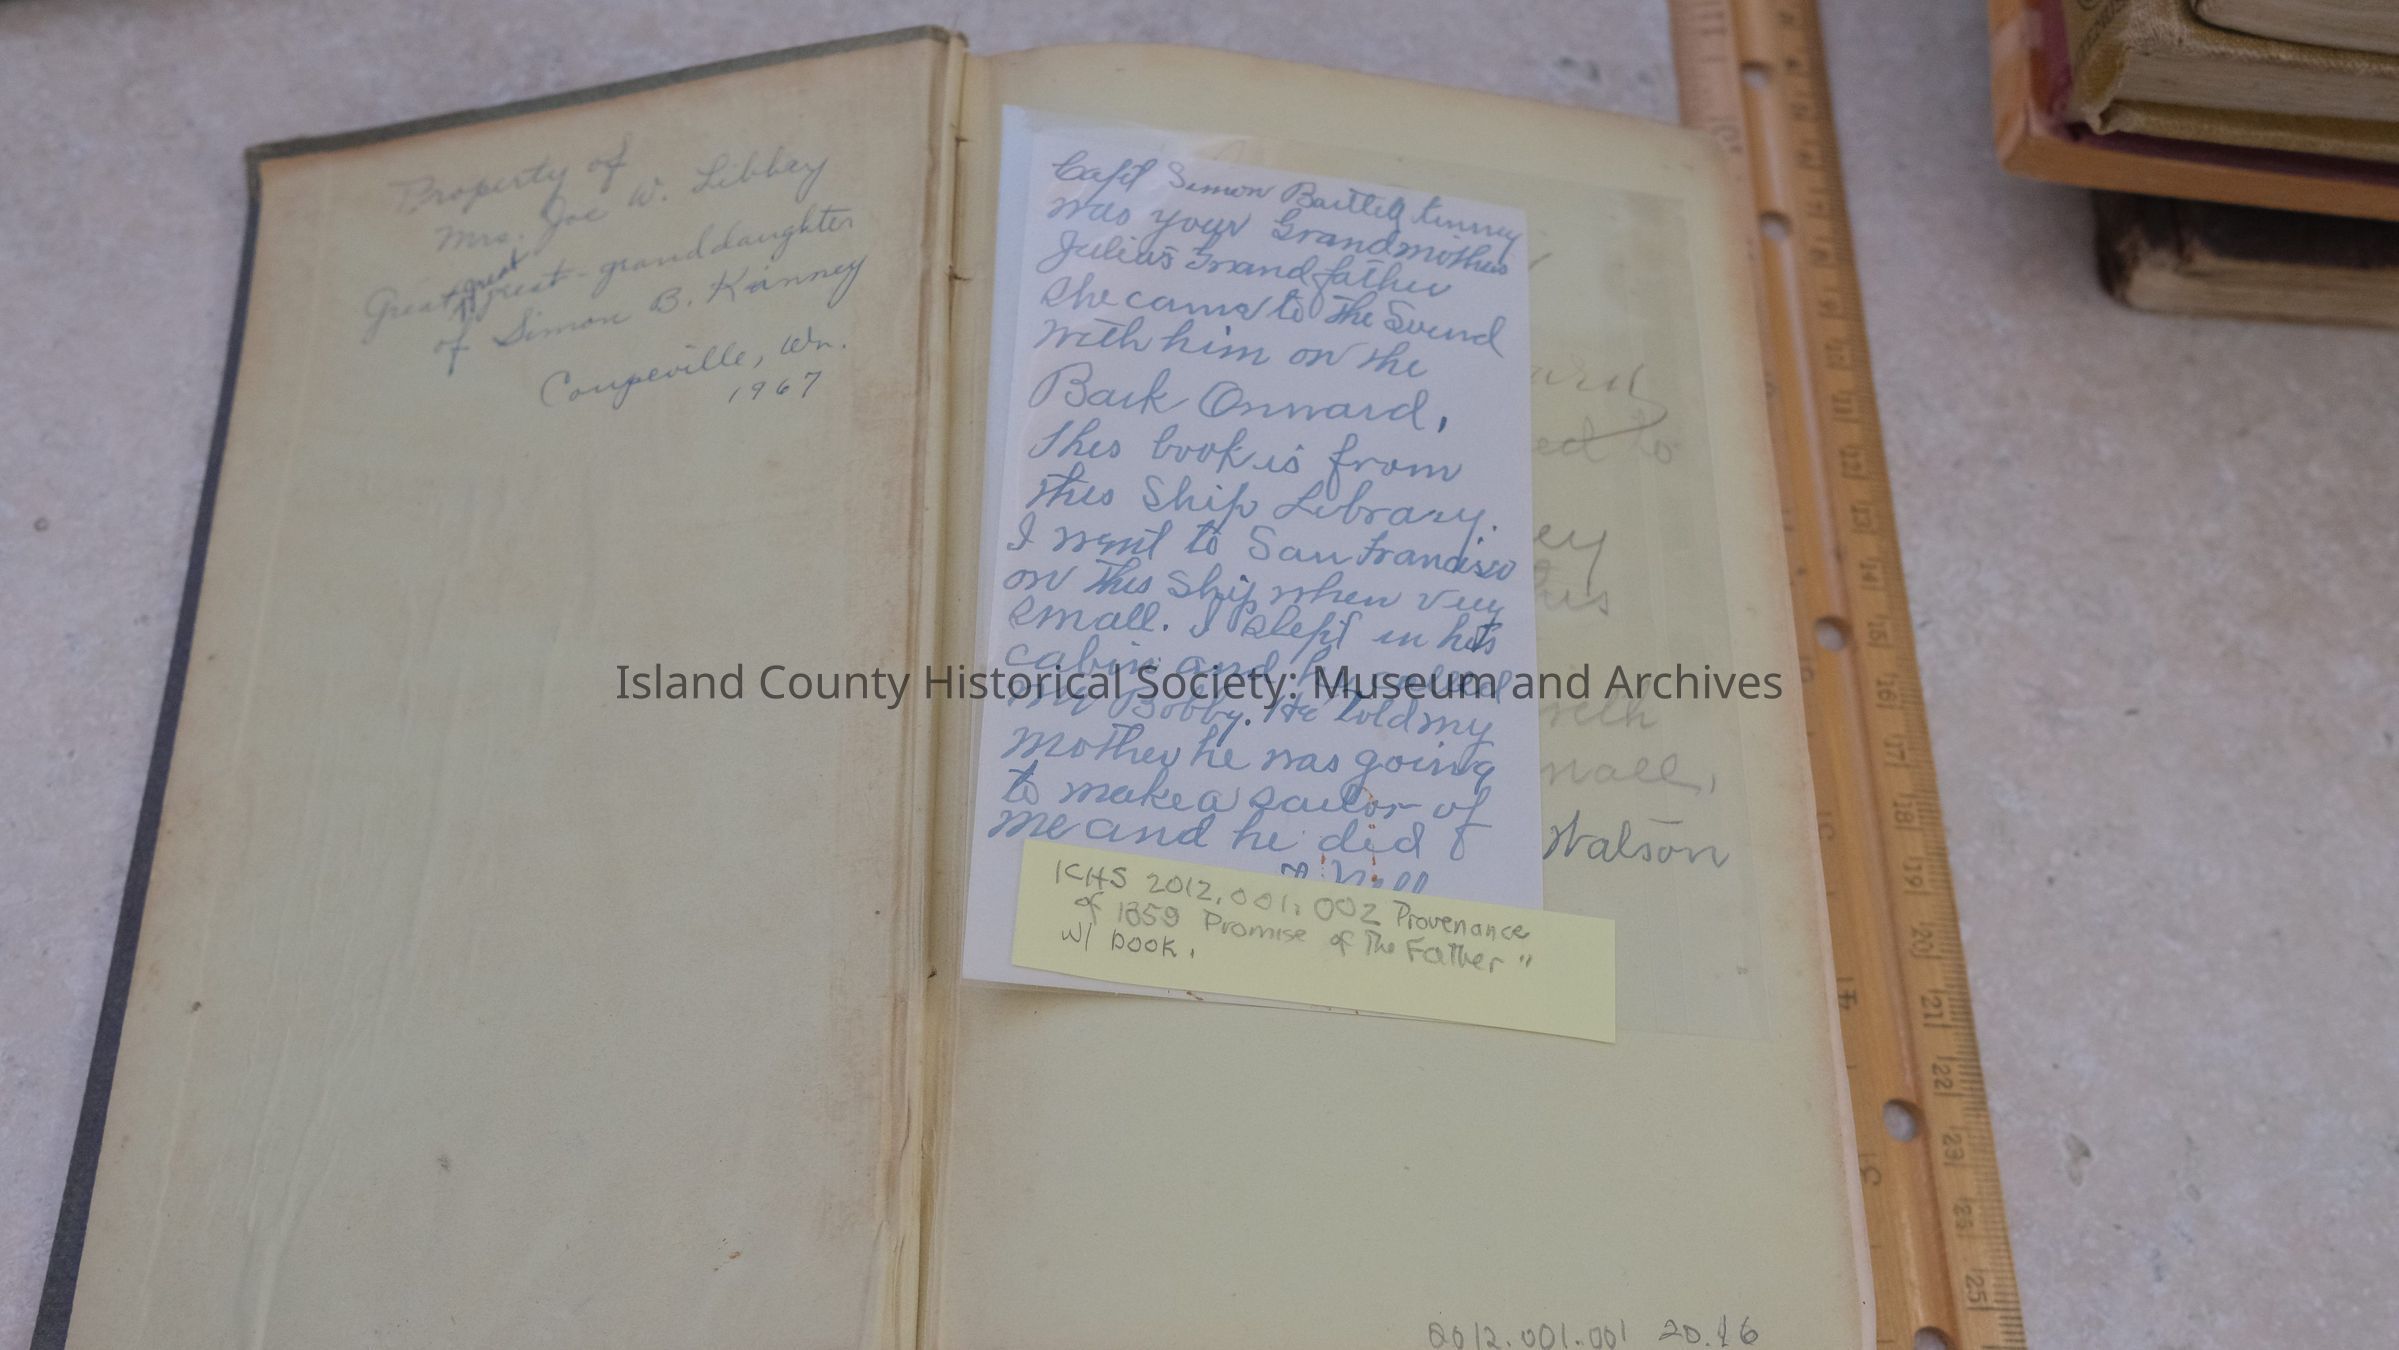 Property of
Mrs. Joe W. Libbey
Great great great-granddaughter
of Simon B. Kinney
Coupeville, Wn.
1967
Capt Simon Bartlett Kinney
was your Grandmother
Julia's Grandfather
She came to the Sound
with him on the
Bark Onward,
This book is from
this Ship Library.
I went to San Francisco
on this ship when very
small. I slept in his
cabin and he called
my Bobby. He told my
Mother he was going
to make a sailor of
me and he did
ed to
ey
his
with
mall,
Watson
ICHS 2012.001.002 Provenance
of 1859 Promise of The Father"
w/ book.
2012.001.001 20.16
Island County Historical Society: Museum and Archives